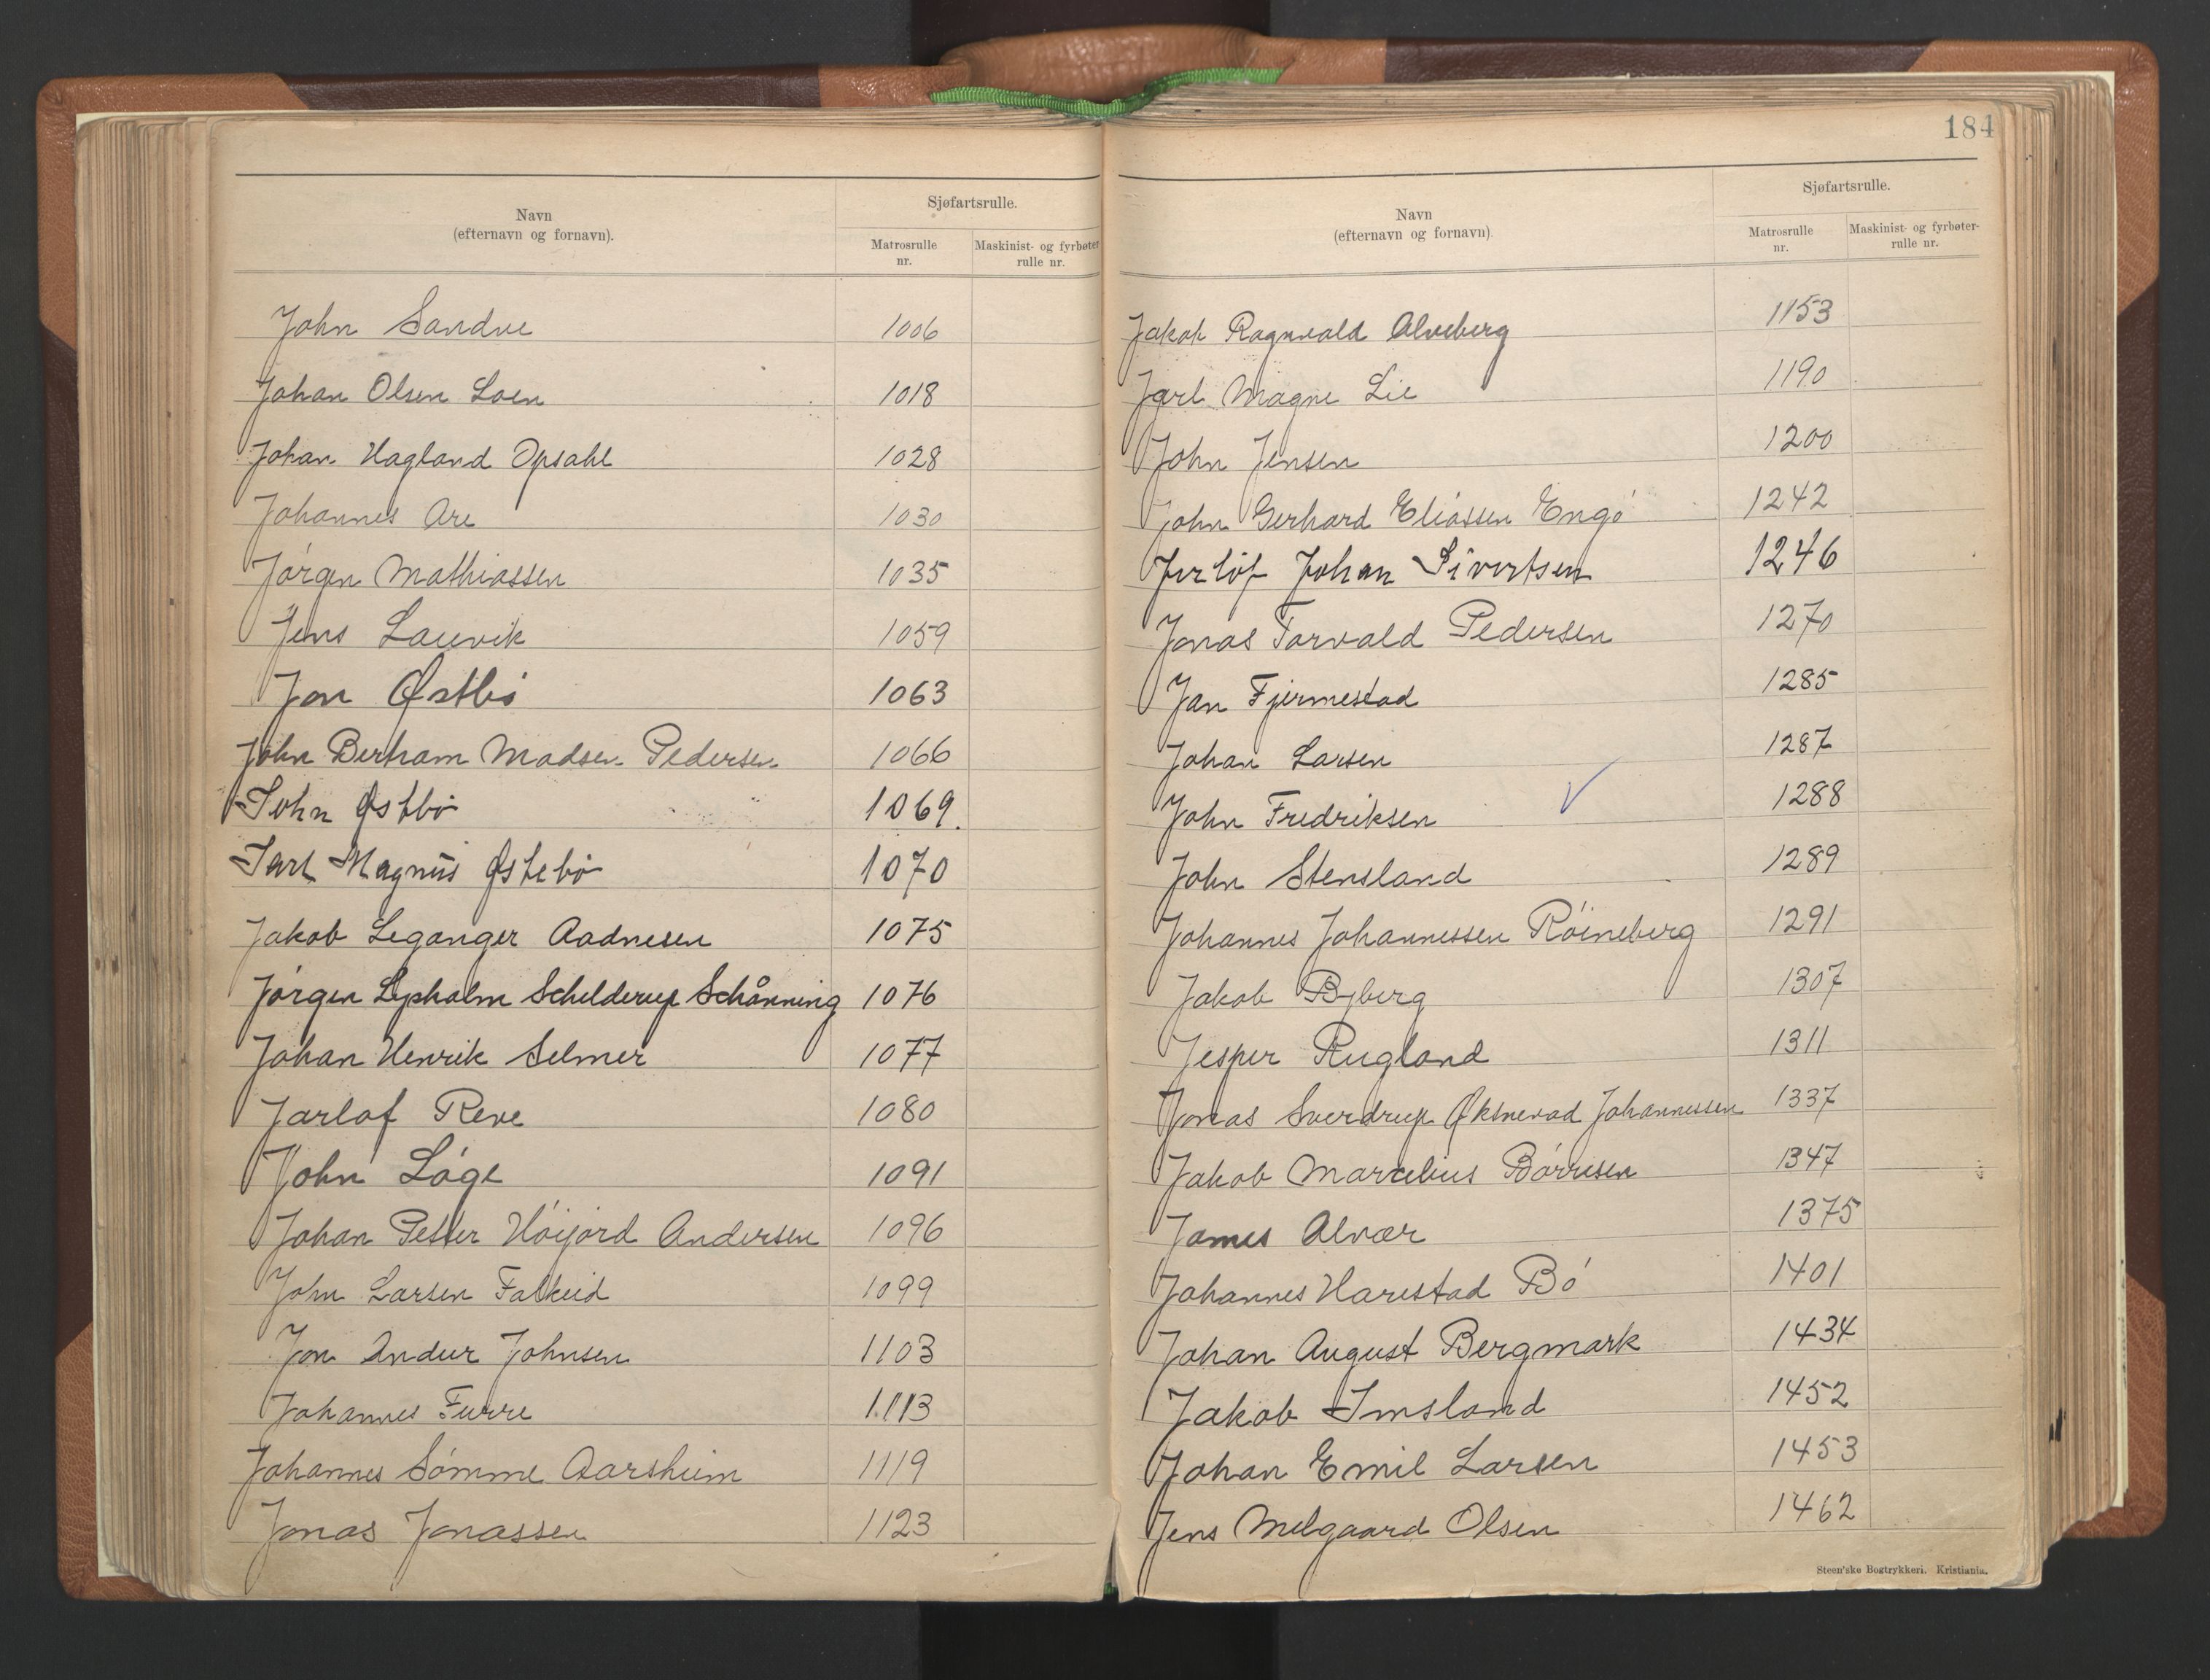 Navn
(efternavn og fornavn).
Sjøfartsrulle.
Matrosrulle
nr.
Maskinist- og fyrbøter
rulle nr.
John Sandve 1006
Johan Olsen Loen 1018
Johan Hagland Opsahl 1028
Johannes Are 1030
Jørgen Mathiassen 1035
Jens Lauvik 1059
Jon Østbø 1063
John Bertram Madsen Pedersen 1066
John Østbø 1069.
Jarl Magnus Østebø 1070
Jakob Leganger Aadnesen 1075
Jørgen Lysholm Schelderup Schånning 1076
Johan Henrik Selmer 1077
Jarlof Reve 1080
John Løge 1091
Johan Petter Høijord Andersen 1096
John Larsen Falkeid 1099
Jon Andur Johnsen 1103
Johannes Furre 1113
Johannes Sømme Aarsheim 1119
Jonas Jonassen 1123
184
Navn
(efternavn og fornavn).
Sjøfartsrulle.
Matrosrulle
nr.
Maskinist- og fyrbøter-
rulle nr.
Jakob Ragnvald Alveberg 1153
Jarl Magne Lie 1190
John Jensen 1200
John Gerhard Eliassen Engø 1242
Johan Sivertsen 1246
Jonas Torvald Pedersen 1270
Jan Fjermestad 1285
Johan Larsen 1287
John Fredriksen 1288
John Stensland 1289
Johannes Johannessen Røineberg 1291
Jakob Byberg 1307
Jesper Rugland 1311
Jonas Sverdrup Øksnevad Johannessen 1337
Jakob Marcelius Børresen 1347
James Alvær 1375
Johannes Harestad Bø 1401
Johan August Bergmark 1434
Jakob Imsland 1452
Johan Emil Larsen 1453
Jens Melgaard Olsen 1462
Steen'ske Bogtrykkeri. Kristiania.